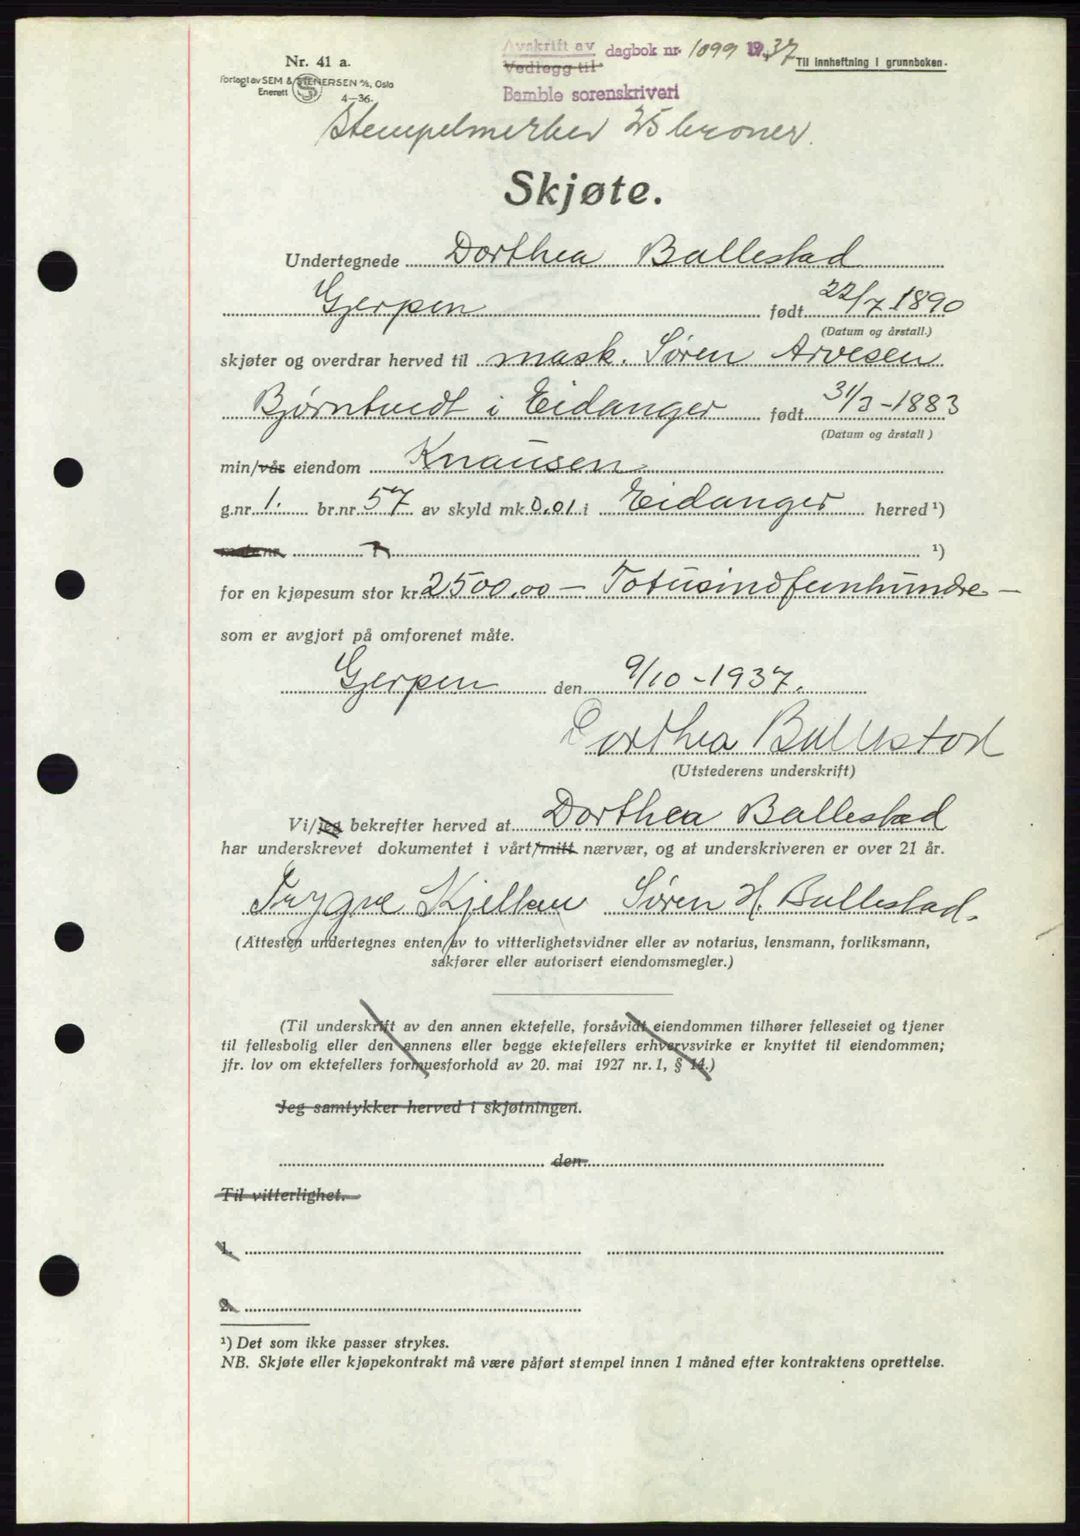 Nr. 41 a.
Forlagt av SEM & STENERSEN A/S, Oslo
Enerett 4-36.
Avskrift av
Vedlegg til dagbok nr. 1099 1937
Bamble sorenskriveri
Til innheftning i grunnboken.
Stempelmerker 25 kroner.
Skjøte.
Undertegnede Dorthea Ballestad
Gjerpen født 22/7 1890
(Datum og årstall.)
skjøter og overdrar herved til mask. Søren Arvesen
Bjørntvedt i Eidanger født 31/3-1883
(Datum og årstall)
min/vår eiendom Knausen
g.nr. 1. br.nr. 57 av skyld mk. 0.01 i Eidanger herred ¹)
matr.nr. ¹)
for en kjøpesum stor kr 2500.00 — Totusindfemhundre —
som er avgjort på omforenet måte.
Gjerpen den 9/10-1937.
Dorthea Ballestad
(Utstederens underskrift)
Vi/jeg bekrefter herved at Dorthea Ballestad
har underskrevet dokumentet i vårt/mitt nærvær, og at underskriveren er over 21 år.
Trygve Kjellau Søren H. Ballestad.
(Attesten undertegnes enten av to vitterlighetsvidner eller av notarius, lensmann, forliksmann,
sakfører eller autorisert eiendomsmegler.)
(Til underskrift av den annen ektefelle, forsåvidt eiendommen tilhører felleseiet og tjener
til fellesbolig eller den annens eller begge ektefellers erhvervsvirke er knyttet til eiendommen;
jfr. lov om ektefellers formuesforhold av 20. mai 1927 nr. 1, § 14.)
Jeg samtykker herved i skjøtningen.
den
Til vitterlighet.
1.
2.
¹) Det som ikke passer strykes.
NB. Skjøte eller kjøpekontrakt må være påført stempel innen 1 måned efter kontraktens oprettelse.